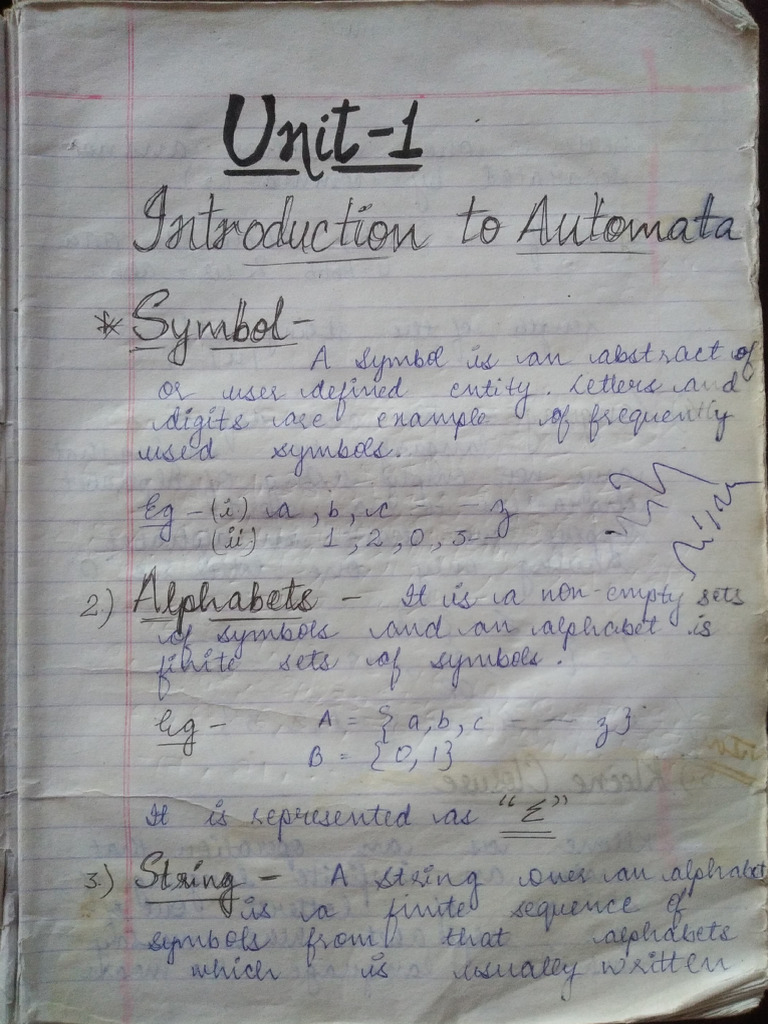 Unit-1
Introduction to Automata
* Symbol-
A symbol is an abstract of
or user defined entity. Letters and
digits are example of frequently
used symbols.
Eg - (i) a, b, c - - z
(ii) 1, 2, 0, 3--
2.) Alphabets - It is a non-empty sets
of symbols and an alphabet is
finite sets of symbols.
Eg - A = {a, b, c - - z}
B = {0, 1}
It is represented as "Σ"
3.) String - A string over an alphabet
is a finite sequence of
symbols from that alphabets
which is usually written